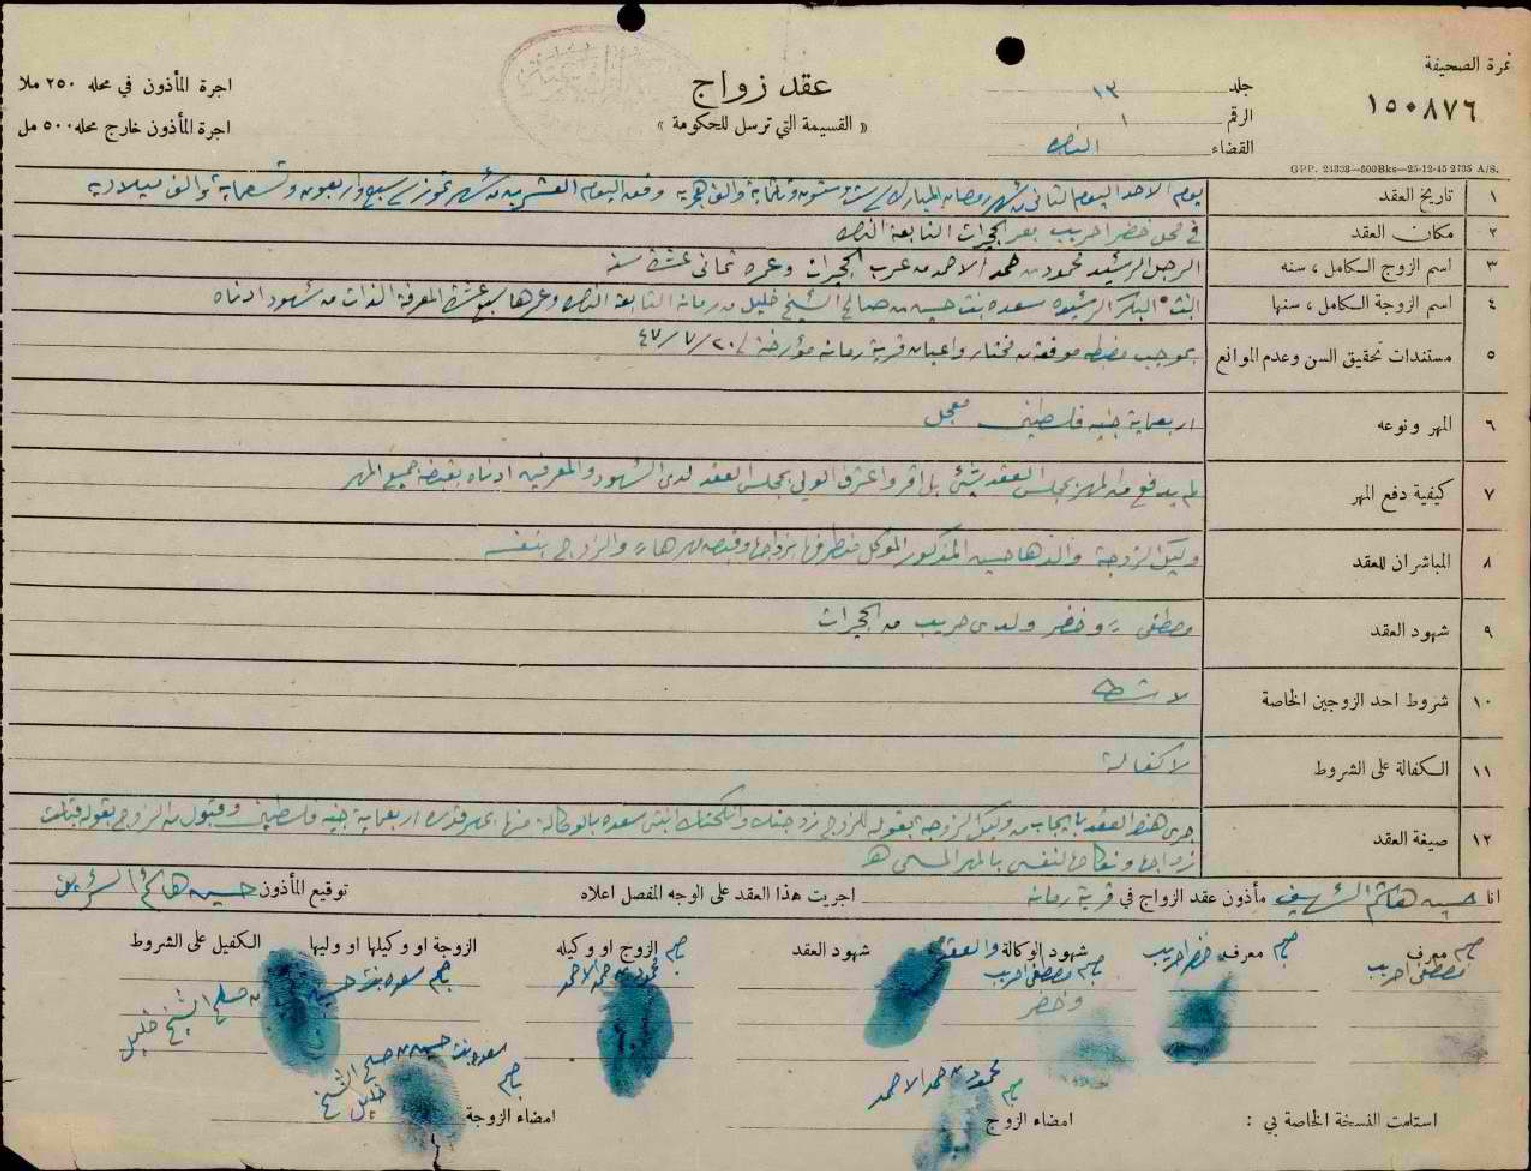 نمرة الصحيفة
١٥٠٨٧٦
جلد ١٣
الرقم ١
القضاء الناصرة
عقد زواج
« القسيمة التي ترسل للحكومة »
اجرة المأذون في محله ٢٥٠ ملا
اجرة المأذون خارج محله ٥٠٠ مل
GPP. 21333—500Bks—25-12-45 2735 A/S.
١ تاريخ العقد يوم الاحد اليوم الثاني من شهر رمضان المبارك سنة ست وستون وثلثماية والف هجرية وفق اليوم العشرين من شهر تموز سنة سبع واربعون وتسعماية والف ميلادية
٢ مكان العقد في محل خضر احريب بعرب الحجيرات التابعة الناصرة
٣ اسم الزوج الكامل ، سنه الرجل الرشيد محمود بن حمد الاحمد من عرب الحجيرات وعمره ثماني عشرة سنة
٤ اسم الزوجة الكامل ، سنها البنت البكر الرشيده سعده بنت حسين بن صالح الشيخ خليل من رمانة التابعة الناصرة وعمرها سبع عشرة المعرفة الذات من شهود ادناه
٥ مستندات تحقيق السن وعدم الموانع بموجب مضبطه موقعة من مختار واعيان قرية رمانة مؤرخة ٢٠/٧/٤٧
٦ المهر ونوعه اربعماية جنيه فلسطيني معجل
٧ كيفية دفع المهر لم يدفع من المهر بمجلس العقد شيئ بل اقر واعترف الولي بمجلس العقد لدى الشهود والمعرفين ادناه بقبضه جميع المهر
٨ المباشران للعقد وكيل الزوجة والدها حسين المذكور الموكل من طرفها بزواجها وقبض مهرها والزوج بنفسه
٩ شهود العقد مصطفى وخضر ولدى حريب من الحجيرات
١٠ شروط احد الزوجين الخاصة لا شرط
١١ الكفالة على الشروط لا كفالة
١٢ صيغة العقد جرى هذا العقد بايجاب من وكيل الزوجة بقوله للزوج زوجتك وانكحتك ابنتي سعده بالوكالة عنها بمهر قدره اربعماية جنيه فلسطيني وقبول من الزوج بقوله قبلت
زواجها ونكاحها لنفسي بالمهر المسمى
انا حسين هاشم الشريف مأذون عقد الزواج في قرية رمانة اجريت هذا العقد على الوجه المفصل اعلاه توقيع المأذون حسين هاشم
معرف
مصطفى احريب
معرف خضر احريب
شهود الوكالة والعقد
مصطفى احريب
وخضر
شهود العقد
الزوج او وكيله
محمود بن حمد الاحمد
الزوجة او وكيلها او وليها
سعده بنت حسين
بن صالح الشيخ خليل
الكفيل على الشروط
استلمت النسخة الخاصة بي :
محمود بن حمد الاحمد
امضاء الزوج
سعده بنت حسين بن صالح الشيخ
خليل
امضاء الزوجة